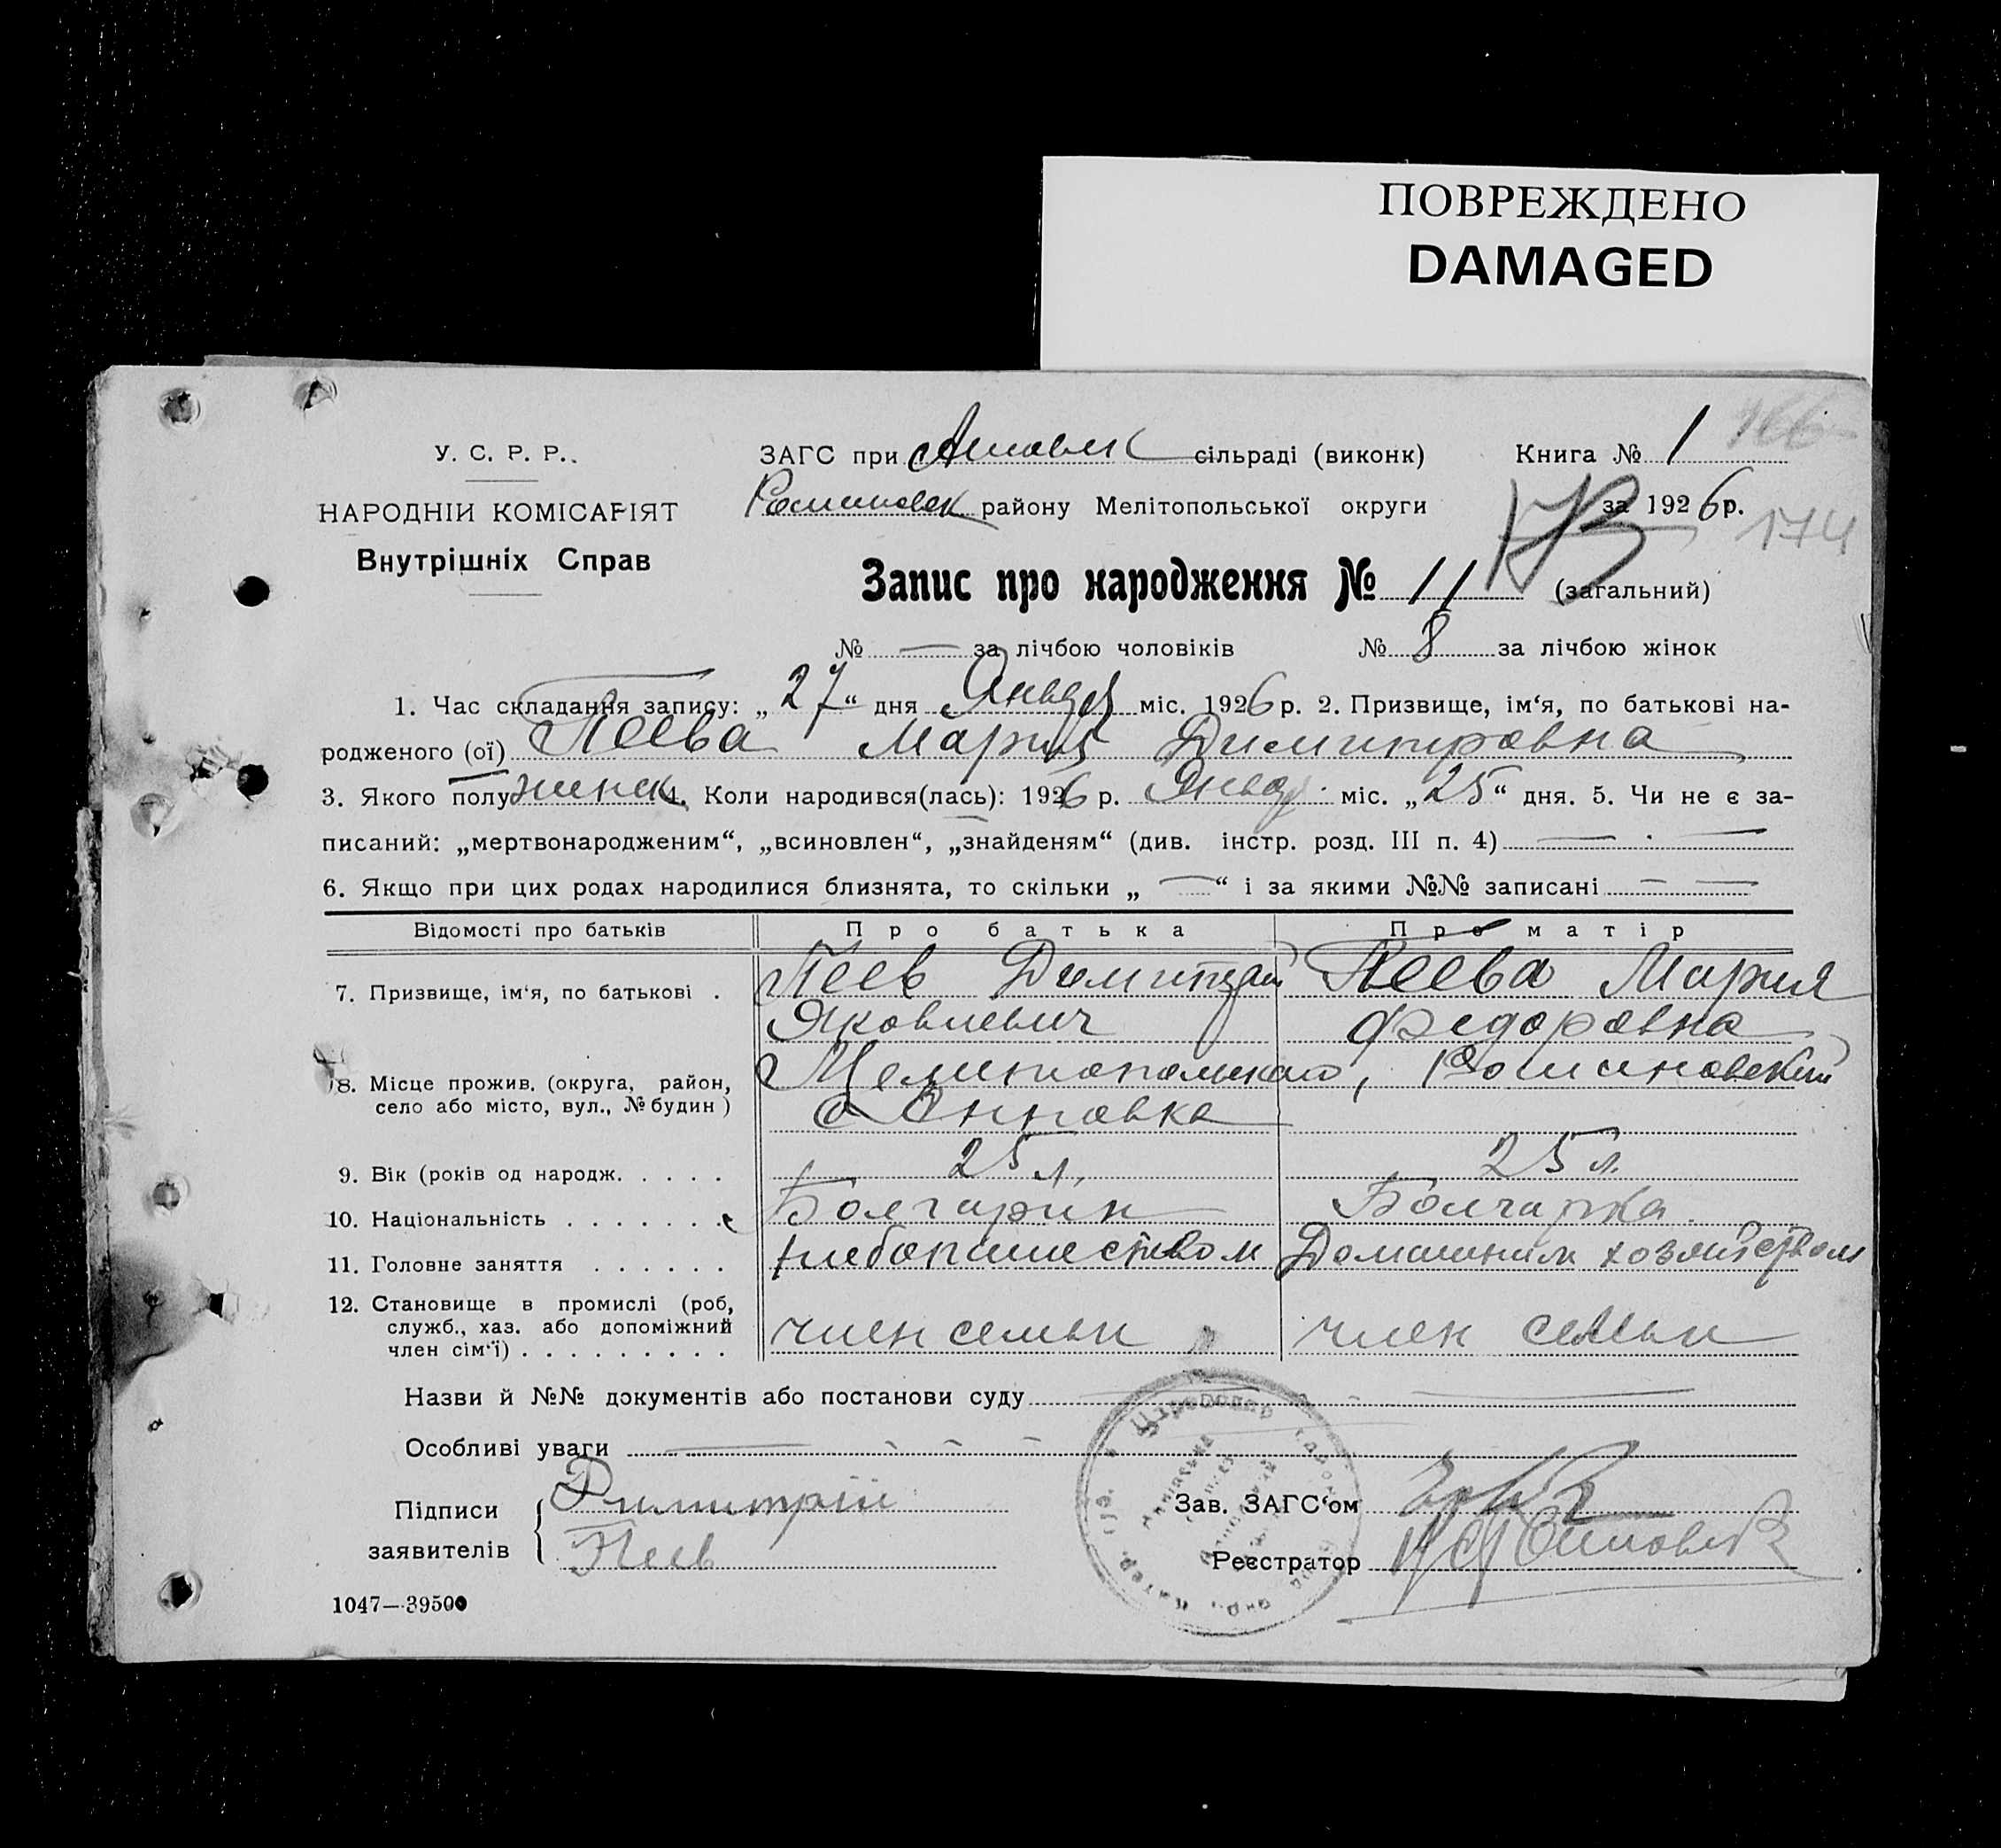 ПОВРЕЖДЕНО
DAMAGED
У. С. Р. Р.
ЗАГС при сільраді (виконк)
Книга № 1 166
НАРОДНІЙ КОМІСАРІЯТ
району Мелітопольської округи
за 1926 р.
173
174
Внутрішніх Справ
Запис про народження № 11 (загальний)
№ — за лічбою чоловіків № 8 за лічбою жінок
1. Час складання запису: „27“ дня Января міс. 1926 р. 2. Призвище, ім‘я, по батькові на-
родженого (ої) Пеева Мария Димитровна
3. Якого полу 4. Коли народився(лась): 1926 р. Январ. міс. „25“ дня. 5. Чи не є за-
писаний: „мертвонародженим“, „всиновлен“, „знайденям“ (див. інстр. розд. III п. 4) — · —
6. Якщо при цих родах народилися близнята, то скільки „ — “ і за якими №№ записані — —
Відомості про батьків Про батька Про матір
7. Призвище, ім‘я, по батькові . Пеев Димитрий Пеева Мария
Яковлевич Федоровна
8. Місце прожив. (округа, район,
село або місто, вул., № будин )
с Анновка
9. Вік (років од народж. . . . . 25 л. 25 л.
10. Національність . . . . . . . Болгарин Болгарка.
11. Головне заняття . . . . . . Хлебопашеством Домашним хозяйством
12. Становище в промислі (роб,
служб., хаз. або допоміжний
член сім‘ї) . . . . . . . . . член семьи член семьи
Назви й №№ документів або постанови суду
Особливі уваги
Підписи
заявителів
Димитрий
Пеев
Зав. ЗАГС‘ом
Реєстратор
1047—39500